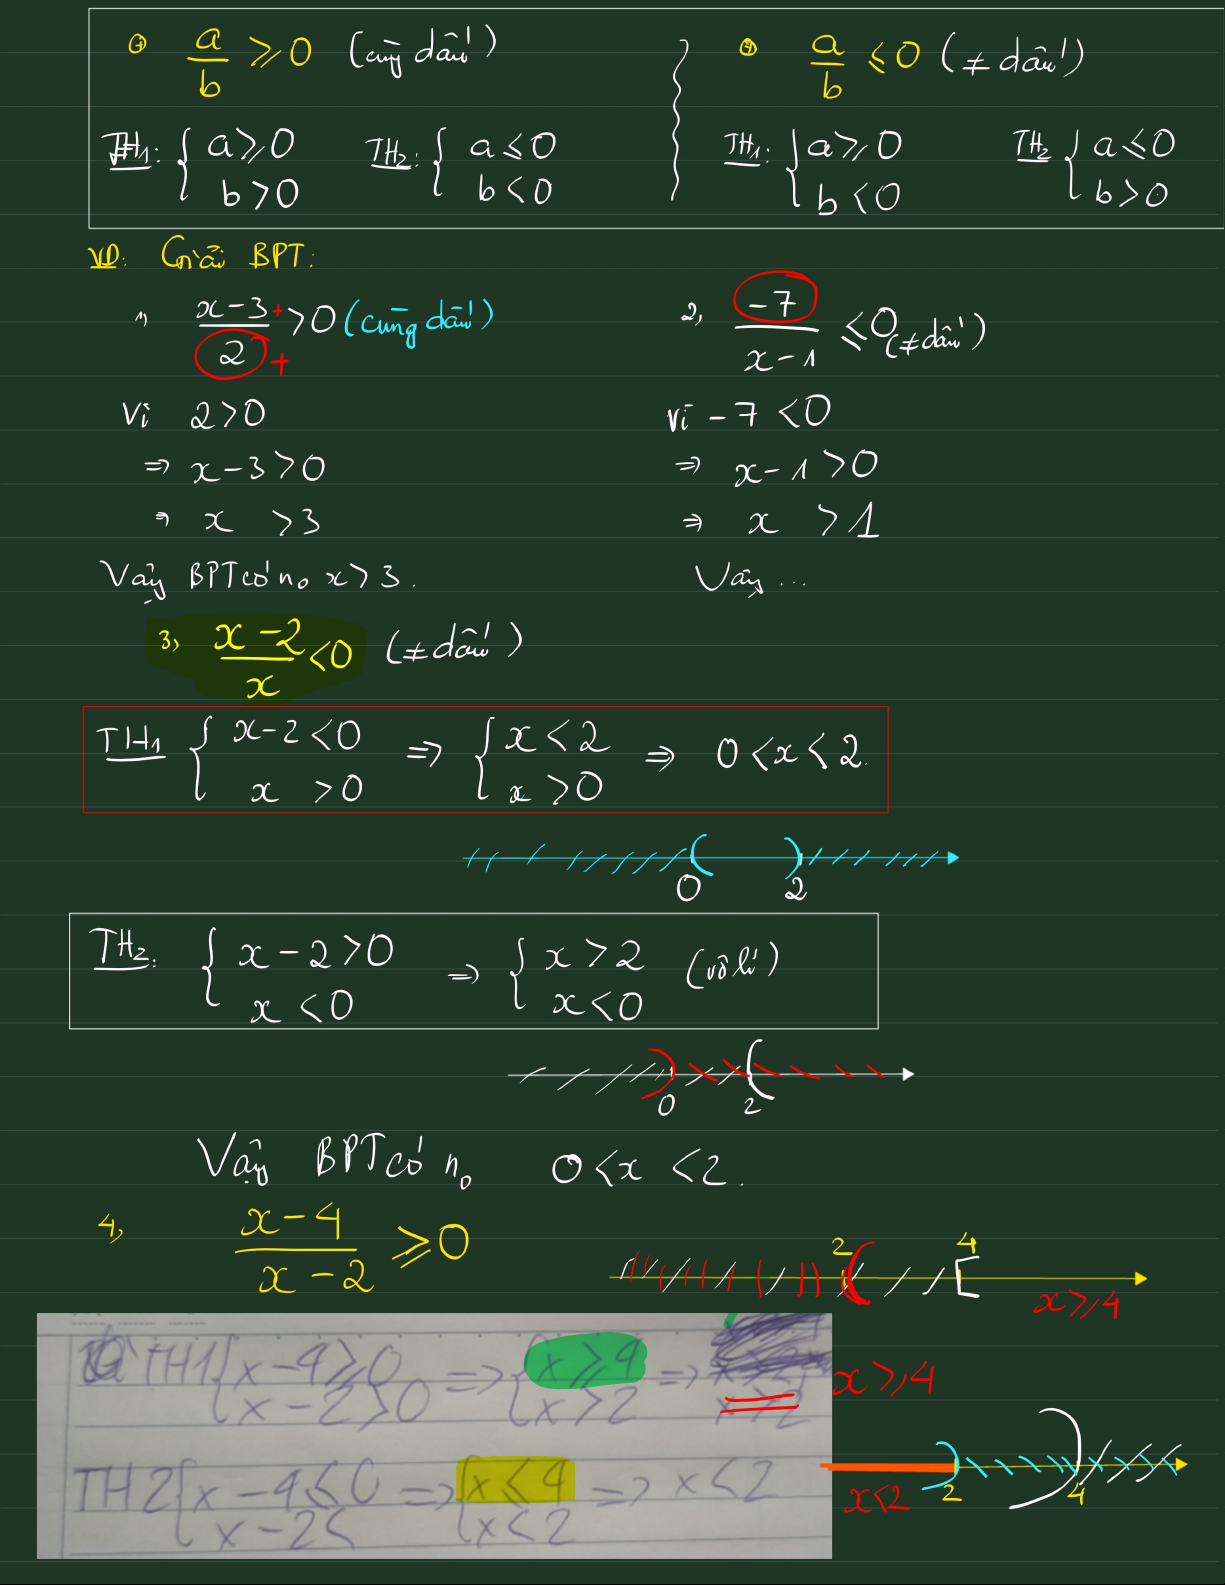 ⊕ a/b ⩾ 0 (cùng dấu)
TH1: { a ⩾ 0
b > 0
TH2: { a ≤ 0
b < 0
⊕ a/b ≤ 0 (≠ dấu)
TH1: { a ⩾ 0
b < 0
TH2 { a ≤ 0
b > 0
VD: Giải BPT:
1, (x-3)/2 > 0 (cùng dấu)
+
+
Vì 2 > 0
⇒ x-3 > 0
⇒ x > 3
Vậy BPT có n₀ x > 3.
2, -7/(x-1) ≤ 0 (≠ dấu)
Vì -7 < 0
⇒ x-1 > 0
⇒ x > 1
Vậy ...
3, (x-2)/x < 0 (≠ dấu)
TH1 { x-2 < 0
x > 0
⇒ { x < 2
x > 0
⇒ 0 < x < 2.
0 2
TH2: { x-2 > 0
x < 0
⇒ { x > 2
x < 0
(vô lí)
0 2
Vậy BPT có n₀ 0 < x < 2.
4, (x-4)/(x-2) ⩾ 0
2 4
x ⩾ 4
TH1 { x-4 ⩾ 0
x-2 > 0
⇒ { x ⩾ 4
x > 2
⇒ x > 2
x ⩾ 4
TH2 { x-4 ≤ 0
x-2 <
⇒ { x ≤ 4
x < 2
⇒ x < 2
x < 2
2 4